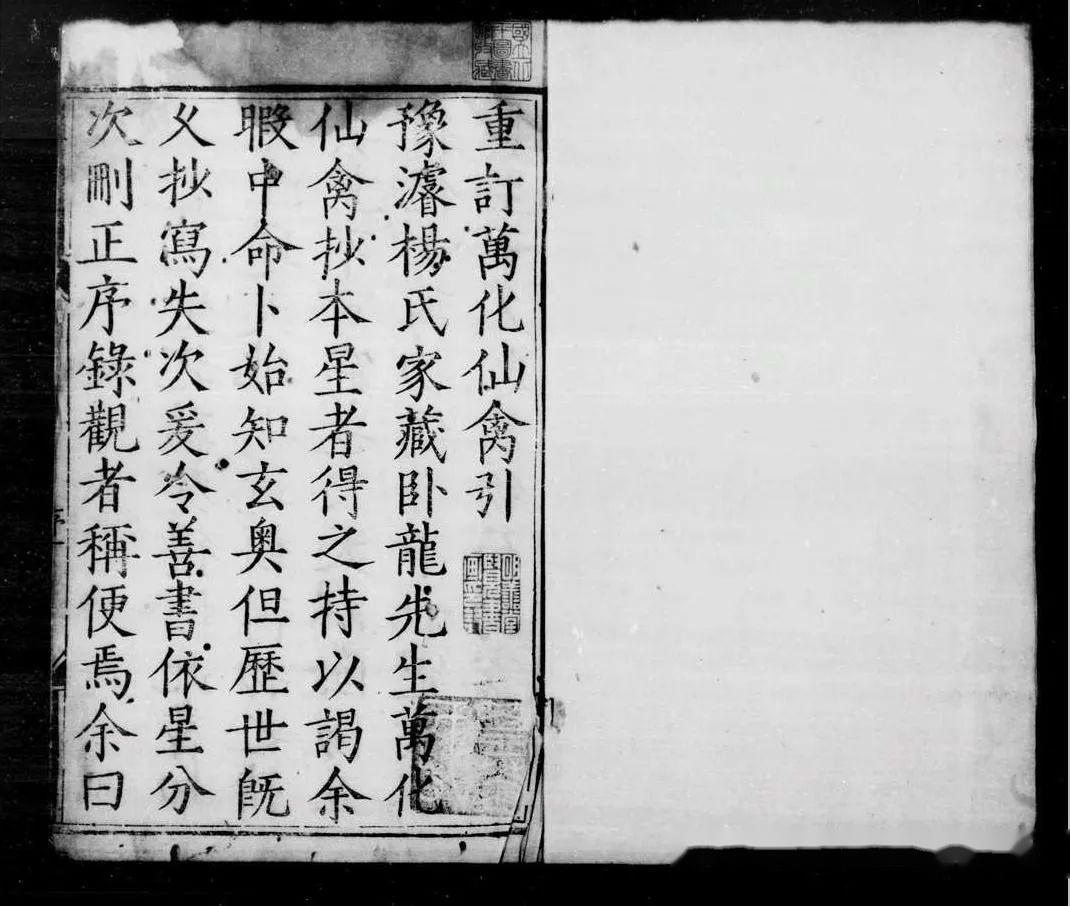 重訂萬化仙禽引
豫濬楊氏家藏卧龍先生萬化
仙禽抄本星者得之持以謁余
暇中命卜始知玄奥但歷世既
乆抄寫失次爰令善書依星分
次刪正序錄觀者稱便焉余曰